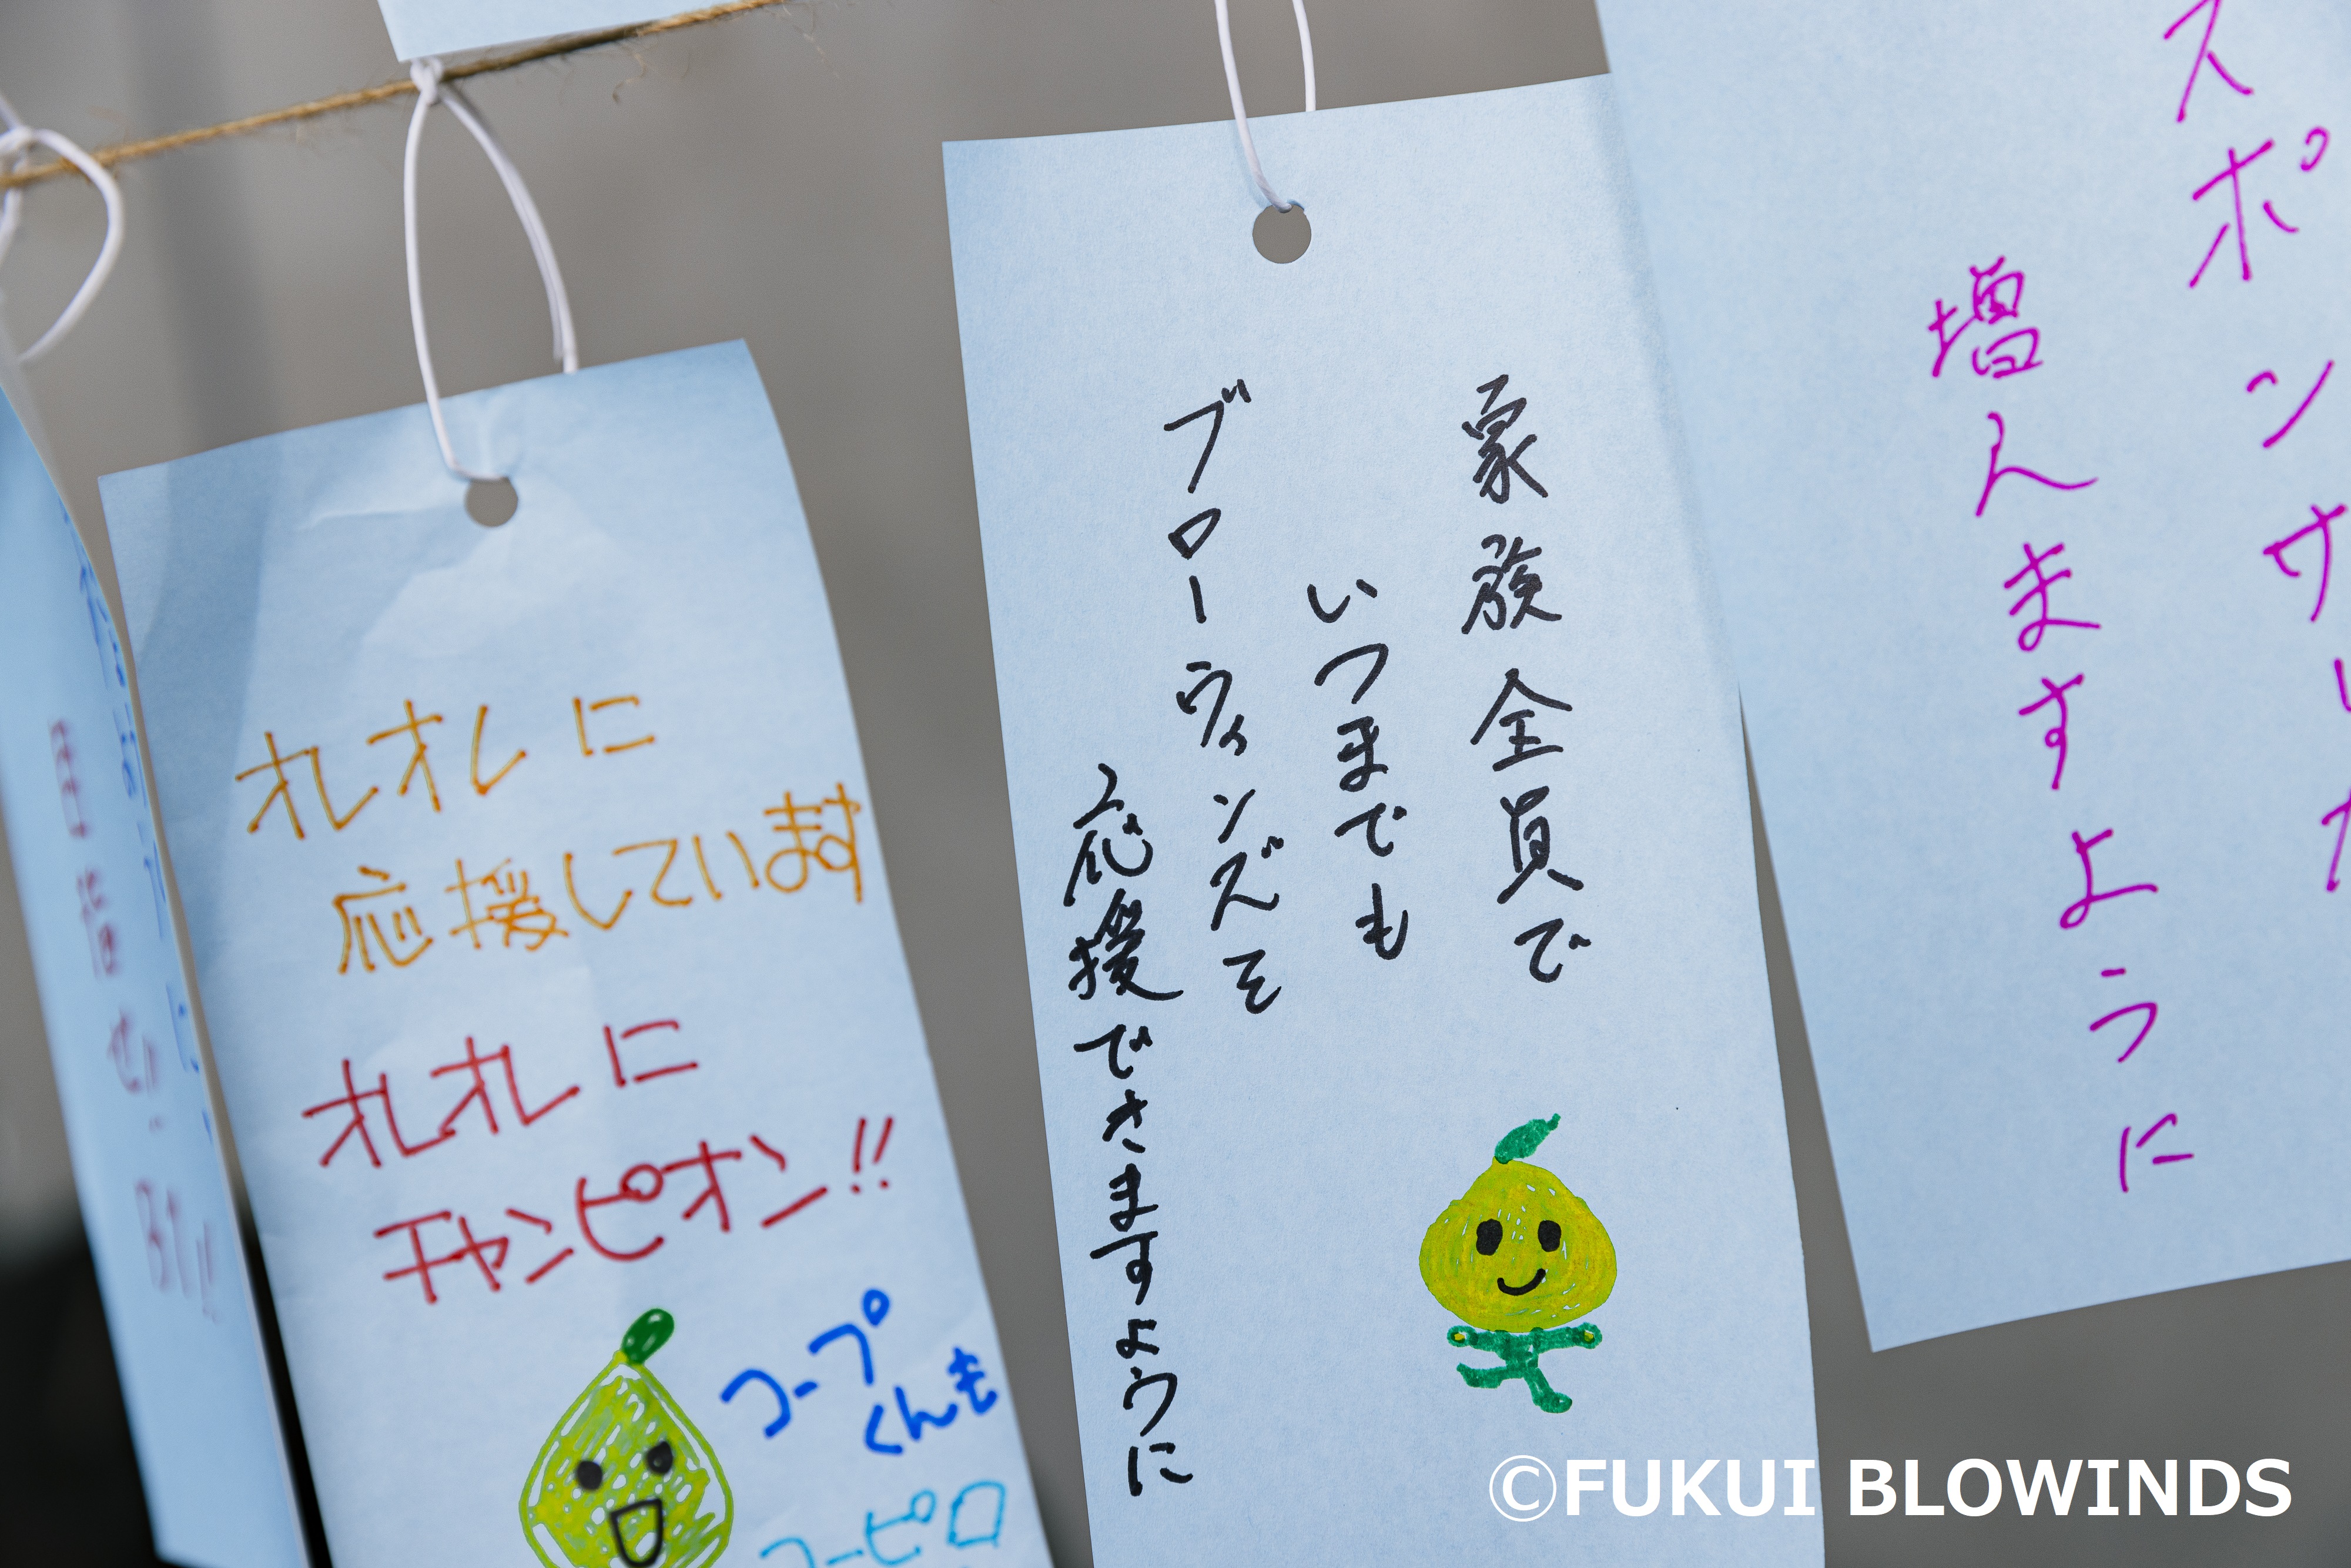 オレオレに
応援しています
オレオレに
チャンピオン!!
コープ
くんも
コーピロ
家族全員で
いつまでも
ブローウィンズを
応援できますように
スポンサーが
増えますように
©FUKUI BLOWINDS